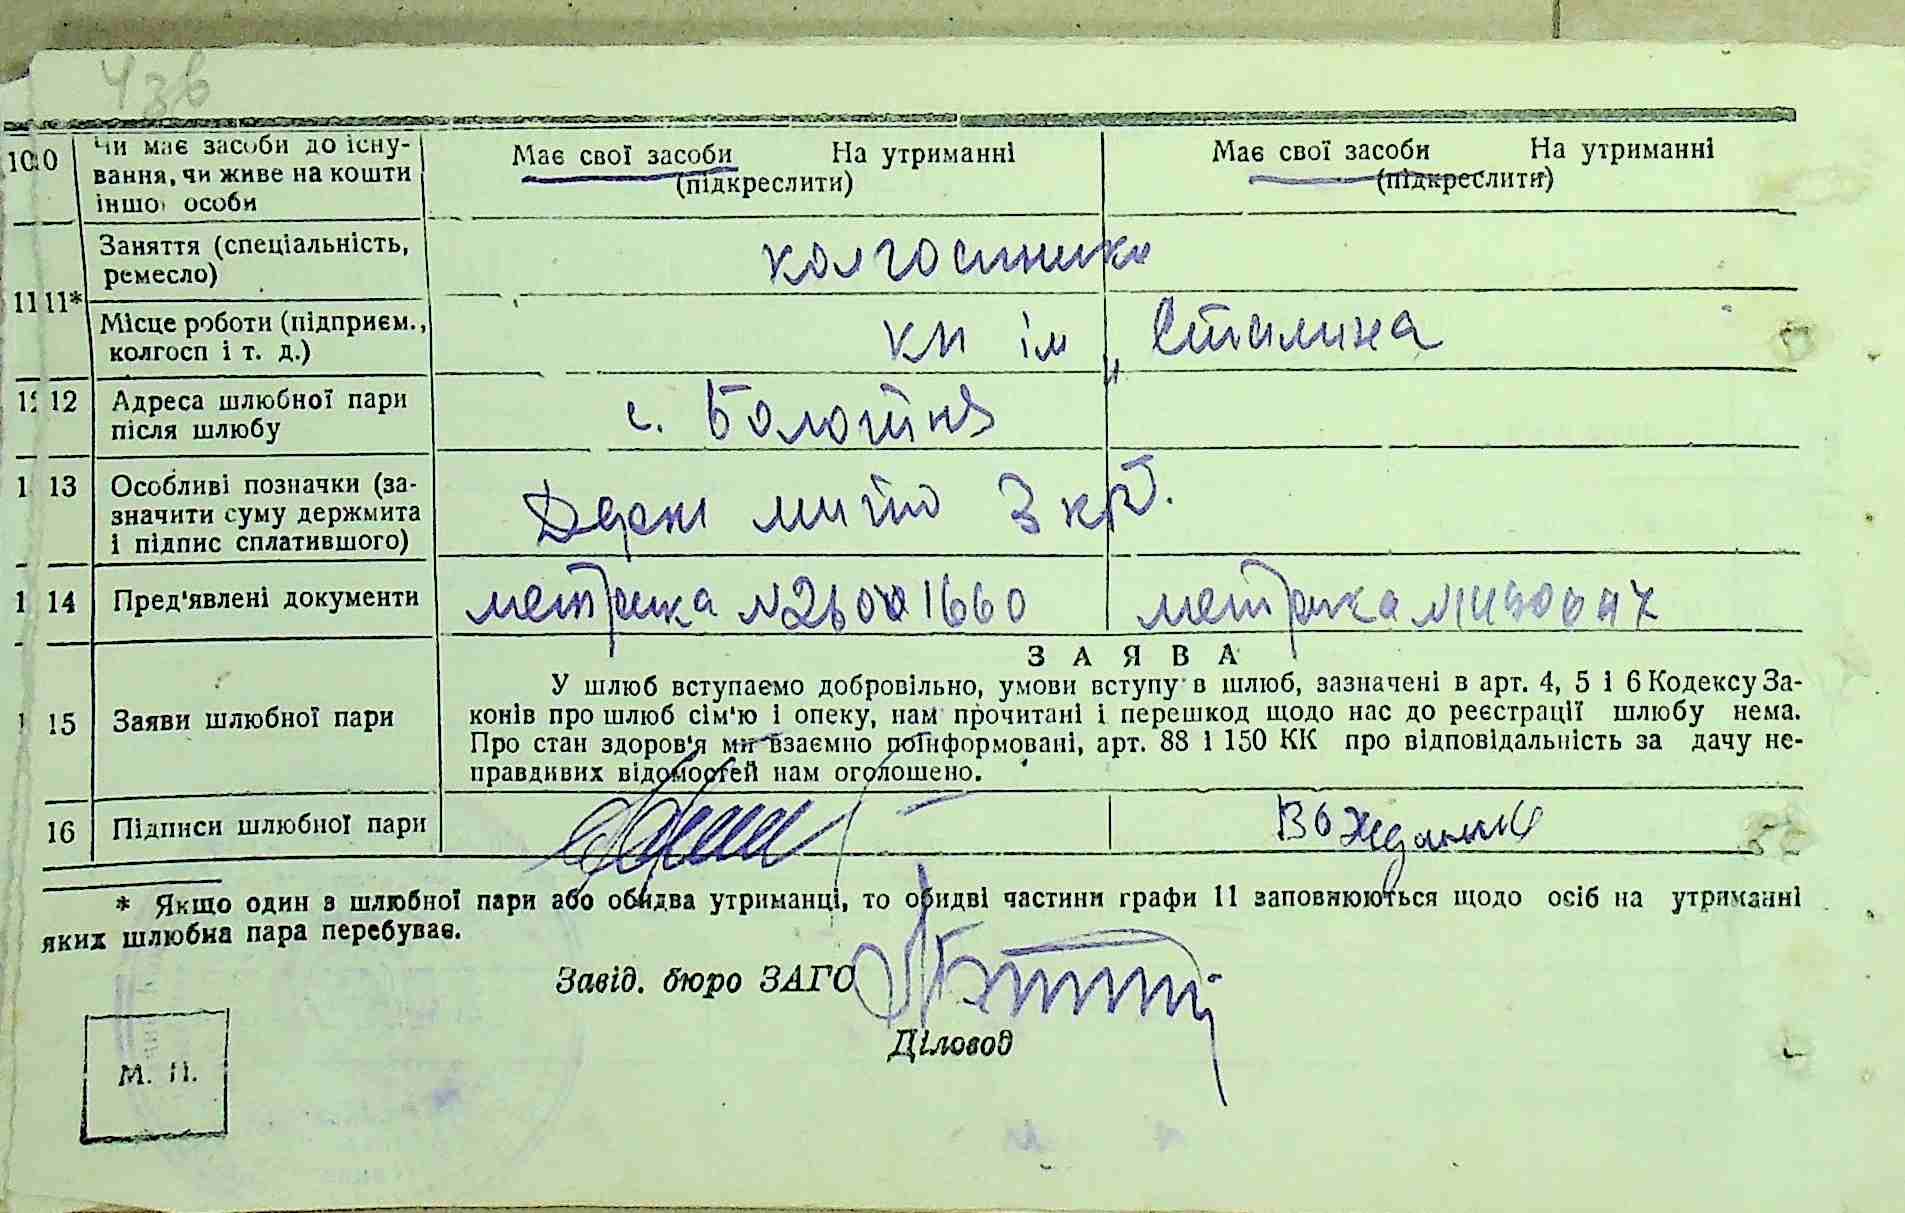 43в
10 Чи має засоби до існу-
вання, чи живе на кошти
іншої особи
Має свої засоби На утриманні
(підкреслити)
Має свої засоби На утриманні
(підкреслити)
11* Заняття (спеціальність,
ремесло)
колгоспники
Місце роботи (підприєм.,
колгосп і т. д.)
кп ім „Сталина"
12 Адреса шлюбної пари
після шлюбу
с. Болотня
13 Особливі позначки (за-
значити суму держмита
і підпис сплатившого)
Держ мито 3 крб.
14 Пред'явлені документи
метрика № метрика
З А Я В А
15 Заяви шлюбної пари
У шлюб вступаємо добровільно, умови вступу в шлюб, зазначені в арт. 4, 5 і 6 Кодексу За-
конів про шлюб сім'ю і опеку, нам прочитані і перешкод щодо нас до реєстрації шлюбу нема.
Про стан здоров'я ми взаємно поінформовані, арт. 88 і 150 КК про відповідальність за дачу не-
правдивих відомостей нам оголошено.
16 Підписи шлюбної пари
* Якщо один з шлюбної пари або обидва утриманці, то обидві частини графи 11 заповнюються щодо осіб на утриманні
яких шлюбна пара перебуває.
Завід. бюро ЗАГС
Діловод
М. П.